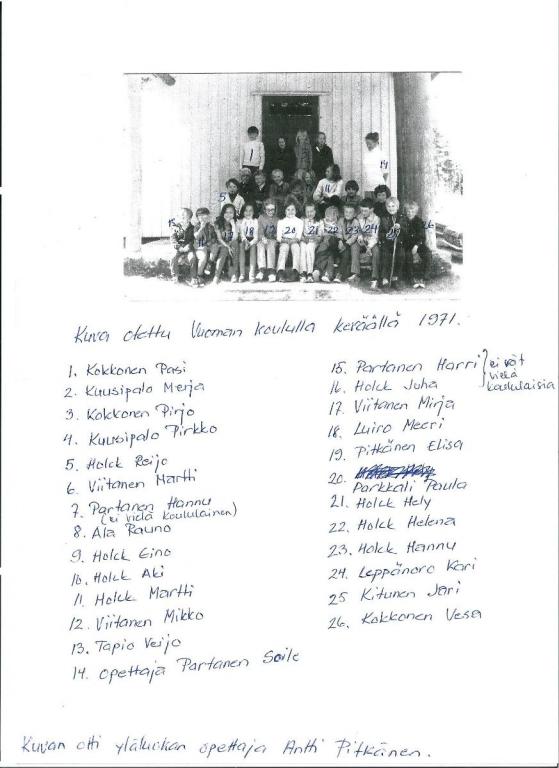 1
5
11
14
15
16
17
18
19
20
21
22
23
24
25
26
Kuva otettu Vuoman koululla keväällä 1971.
1. Kokkonen Pasi
2. Kuusipalo Merja
3. Kokkonen Pirjo
4. Kuusipalo Pirkko
5. Holck Reijo
6. Viitanen Martti
7. Partanen Hannu
(ei vielä koululainen)
8. Ala Rauno
9. Holck Eino
10. Holck Aki
11. Holck Martti
12. Viitanen Mikko
13. Tapio Veijo
14. opettaja Partanen Soile
15. Partanen Harri
16. Holck Juha
ei vät
vielä
koululaisia
17. Viitanen Mirja
18. Luiro Meeri
19. Pitkänen Elisa
20.
Parkkali Paula
21. Holck Hely
22. Holck Helena
23. Holck Hannu
24. Leppänoro Kari
25 Kitunen Jari
26. Kokkonen Vesa
Kuvan otti yläluokan opettaja Antti Pitkänen.